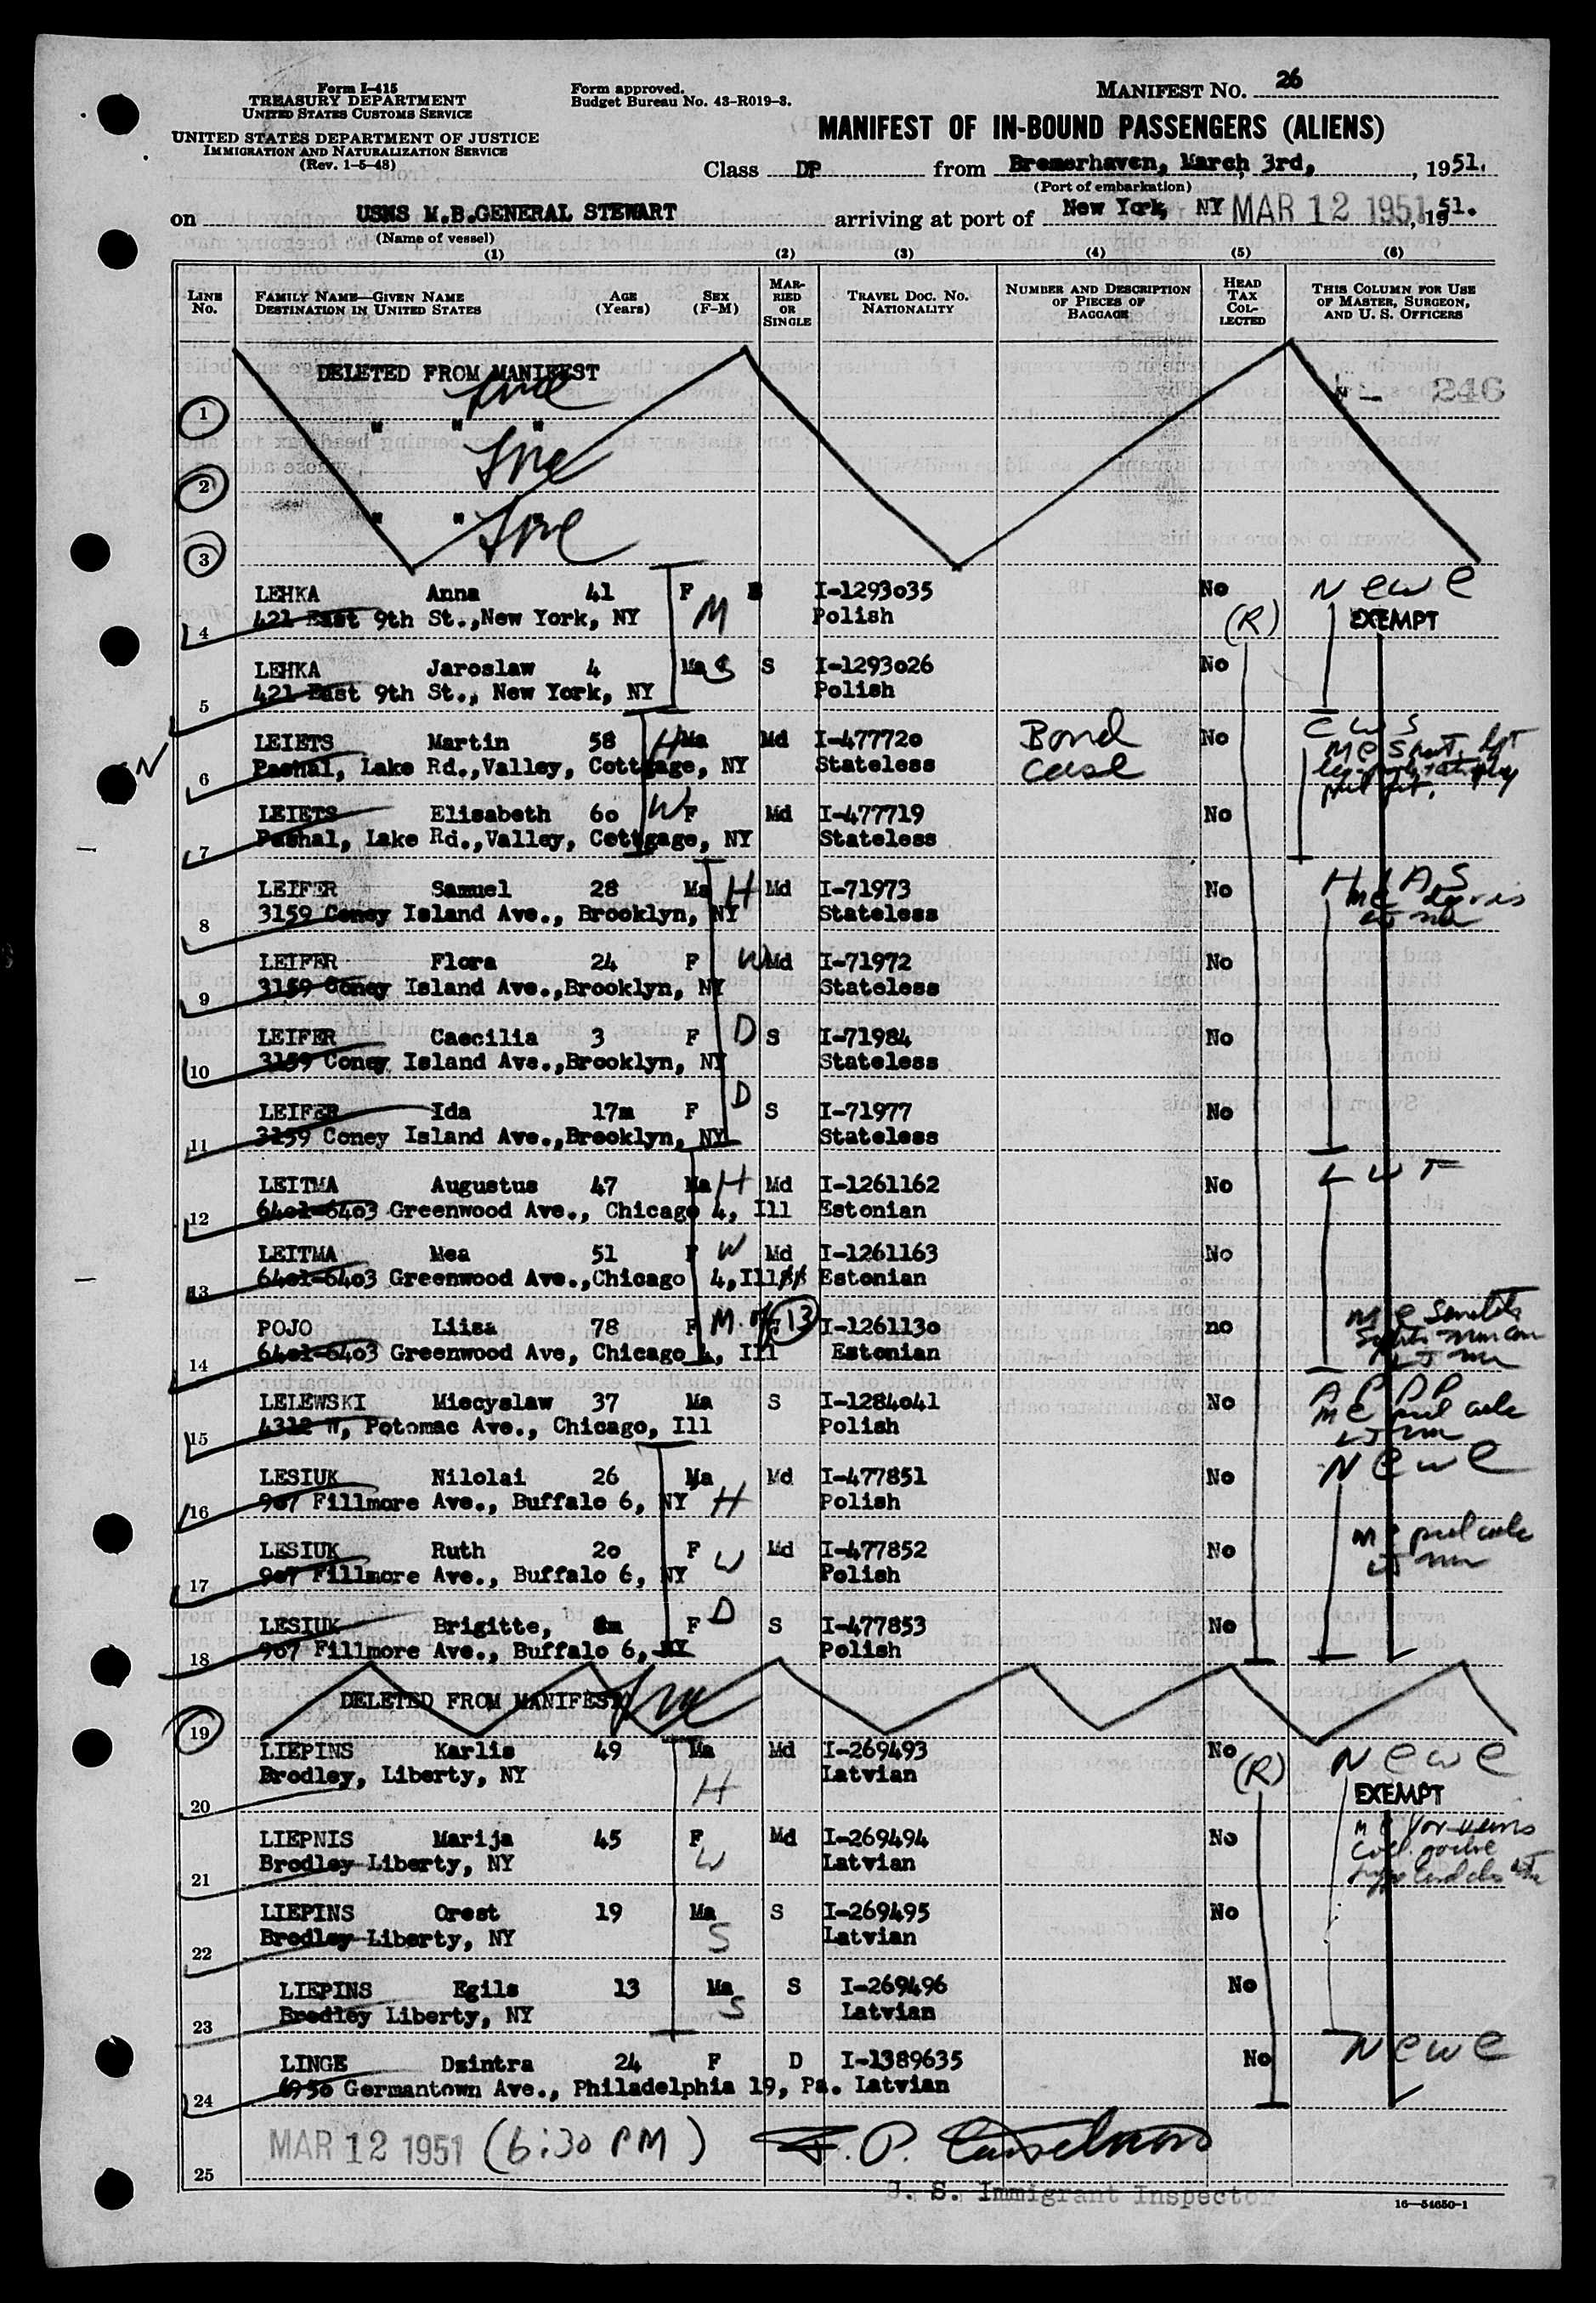 Form I-415
TREASURY DEPARTMENT
UNITED STATES CUSTOMS SERVICE
UNITED STATES DEPARTMENT OF JUSTICE
IMMIGRATION AND NATURALIZATION SERVICE
(Rev. 1-5-48)
Form approved.
Budget Bureau No. 43-R019-3.
MANIFEST NO. 26
MANIFEST OF IN-BOUND PASSENGERS (ALIENS)
Class DP from Bremerhaven, March 3rd, , 1951.
(Port of embarkation)
on USNS M.B.GENERAL STEWART arriving at port of New York, NY MAR 12 1951, 1951.
(Name of vessel)
(1) (2) (3) (4) (5) (6)
LINE NO. FAMILY NAME—GIVEN NAME DESTINATION IN UNITED STATES AGE (Years) SEX (F-M) MARRIED OR SINGLE TRAVEL DOC. NO. NATIONALITY NUMBER AND DESCRIPTION OF PIECES OF BAGGAGE HEAD TAX COLLECTED THIS COLUMN FOR USE OF MASTER, SURGEON, AND U. S. OFFICERS
DELETED FROM MANIFEST
246
1
" " "
2
" " "
3
LEHKA Anna 41 F M I-1293035 No NCWC
4 421 East 9th St.,New York, NY Polish (R) EXEMPT
LEHKA Jaroslaw 4 Ma S S I-1293026 No
5 421 East 9th St., New York, NY Polish
LEIETS Martin 58 H Ma Md I-477720 Bond No CWS
6 Pashal, Lake Rd.,Valley, Cottgage, NY Stateless Case
LEIETS Elisabeth 60 W F Md I-477719 No
7 Pashal, Lake Rd.,Valley, Cottgage, NY Stateless
LEIFER Samuel 28 Ma H Md I-71973 No HIAS
8 3159 Coney Island Ave., Brooklyn, NY Stateless
LEIFER Flora 24 F W Md I-71972 No
9 3159 Coney Island Ave.,Brooklyn, NY Stateless
LEIFER Caecilia 3 F D S I-71984 No
10 3159 Coney Island Ave.,Brooklyn, NY Stateless
LEIFER Ida 17m F D S I-71977 No
11 3159 Coney Island Ave.,Brooklyn, NY Stateless
LEITMA Augustus 47 Ma H Md I-1261162 No LWF
12 6401-6403 Greenwood Ave., Chicago 4, Ill Estonian
LEITMA Mea 51 F W Md I-1261163 No
13 6401-6403 Greenwood Ave.,Chicago 4,Ill Estonian
POJO Liisa 78 F 13 I-1261130 no
14 6401-6403 Greenwood Ave, Chicago 4, Ill Estonian
LELEWSKI Miecyslaw 37 Ma S I-1284041 No
15 4312 W, Potomac Ave., Chicago, Ill Polish
LESIUK Nilolai 26 Ma Md I-477851 No NCWC
16 967 Fillmore Ave., Buffalo 6, NY H Polish
LESIUK Ruth 20 F W Md I-477852 No
17 967 Fillmore Ave., Buffalo 6, NY Polish
LESIUK Brigitte, 8m F D S I-477853 No
18 967 Fillmore Ave., Buffalo 6, NY Polish
DELETED FROM MANIFEST
19
LIEPINS Karlis 49 Ma Md I-269493 No NCWC
20 Brodley, Liberty, NY H Latvian (R) EXEMPT
LIEPNIS Marija 45 F Md I-269494 No
21 Brodley Liberty, NY W Latvian
LIEPINS Orest 19 Ma S I-269495 No
22 Brodley Liberty, NY S Latvian
LIEPINS Egils 13 Ma S I-269496 No
23 Brodley Liberty, NY S Latvian
LINGE Dzintra 24 F D I-1389635 No NCWC
24 6950 Germantown Ave., Philadelphia 19, Pa. Latvian
MAR 12 1951 (6:30 PM)
25
U. S. Immigrant Inspector
16—54650-1